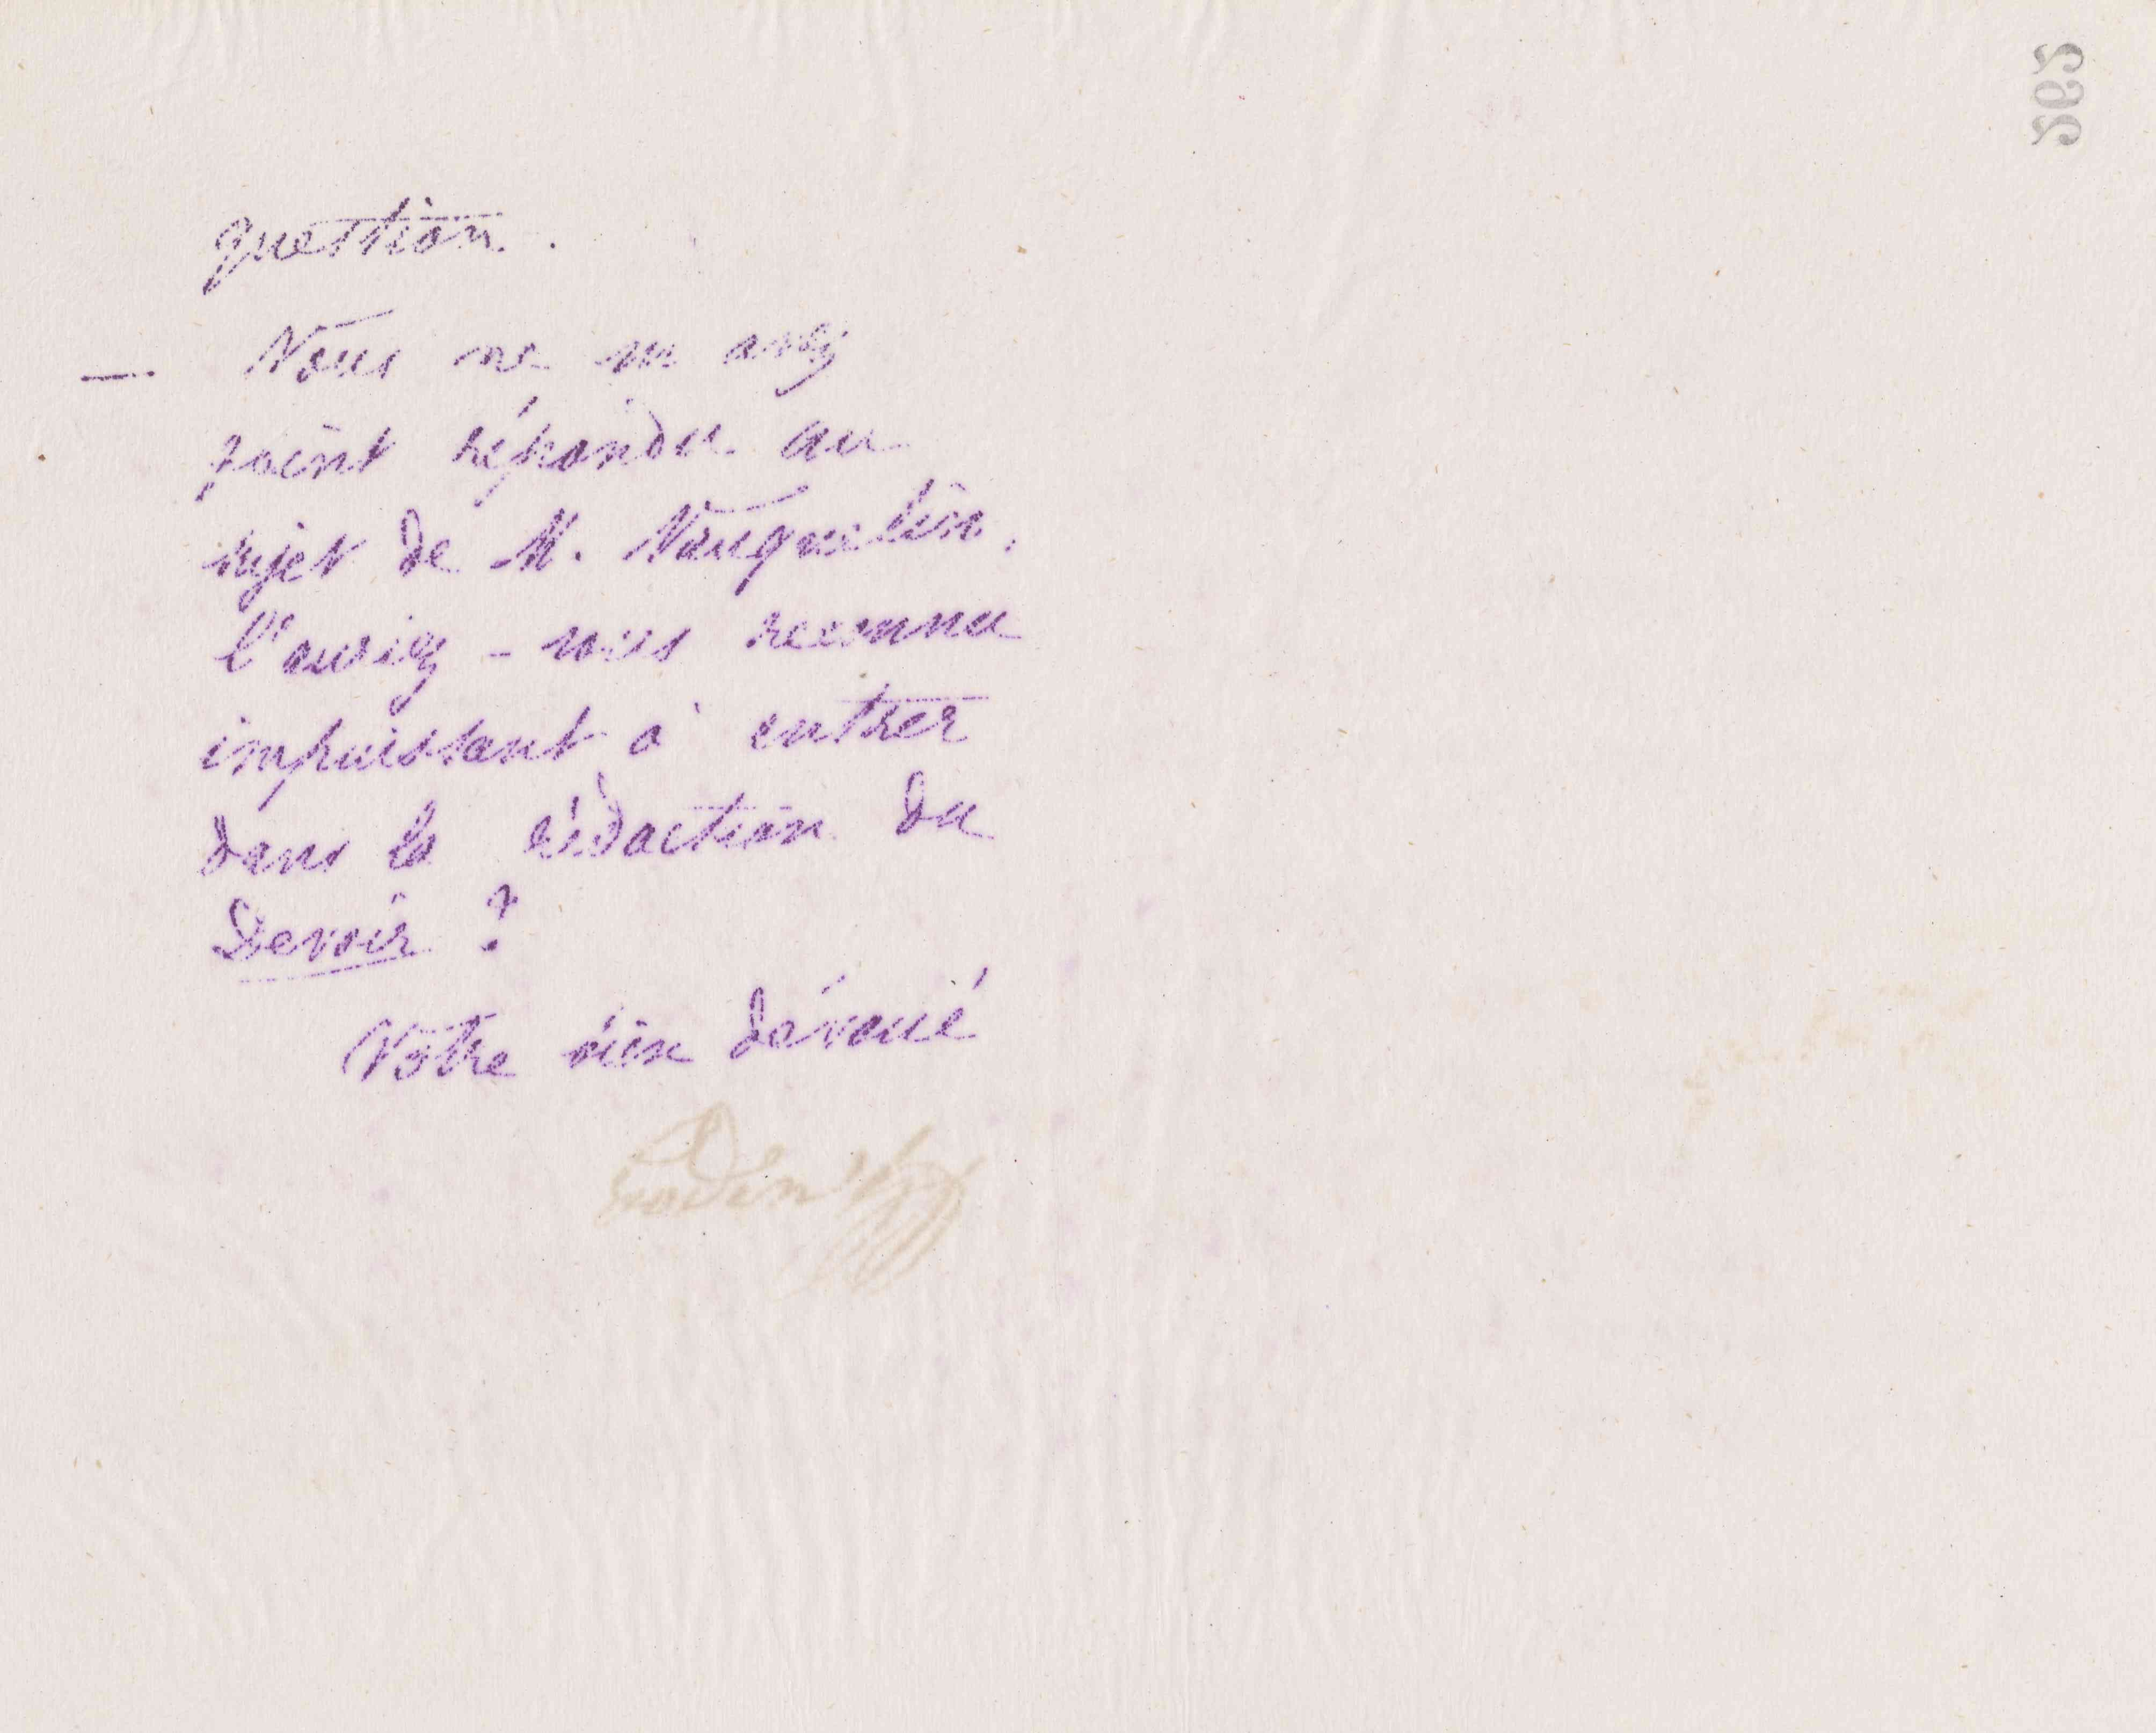 question.
— Vous ne m'avez
point répondu au
sujet de M. Vauquelin,
l'auriez-vous reconnu
impuissant à entrer
dans la rédaction du
Devoir ?
Votre bien dévoué
Godin